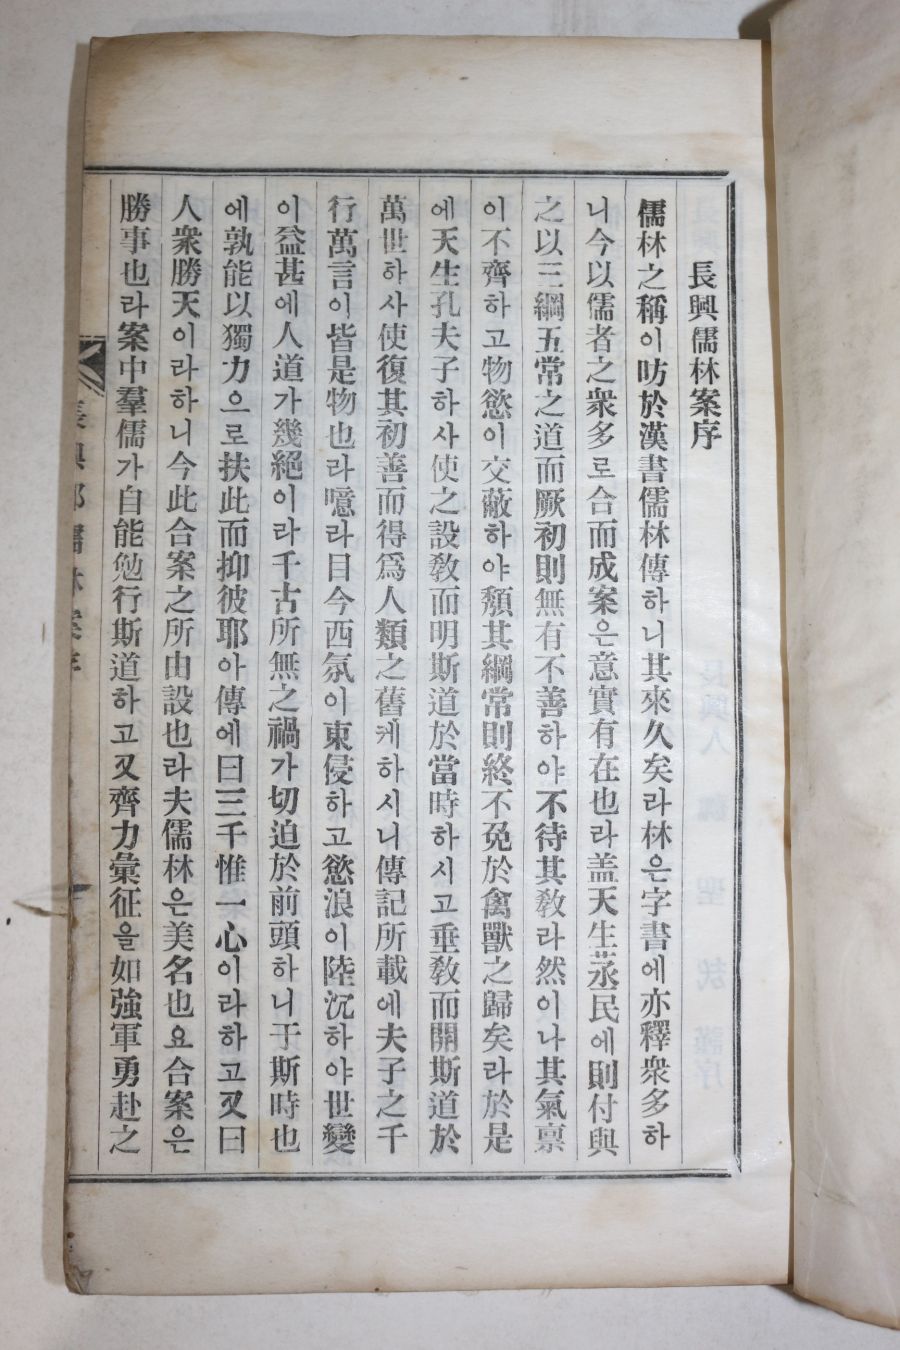 長興儒林案序
儒林之稱이昉於漢書儒林傳하니其來久矣라林은字書에亦釋衆多하
니今以儒者之衆多로合而成案은意實有在也라盖天生烝民에則付與
之以三綱五常之道而厥初則無有不善하야不待其教라然이나其氣禀
이不齊하고物慾이交蔽하야頹其綱常則終不免於禽獸之歸矣라於是
에天生孔夫子하사使之設教而明斯道於當時하시고垂教而開斯道於
萬世하사使復其初善而得爲人類之舊케하시니傳記所載에夫子之千
行萬言이皆是物也라噫라目今西氛이東侵하고慾浪이陸沉하야世變
이益甚에人道가幾絕이라千古所無之禍가切迫於前頭하니于斯時也
에孰能以獨力으로扶此而抑彼耶아傳에曰三千惟一心이라하고又曰
人衆勝天이라하니今此合案之所由設也라夫儒林은美名也요合案은
勝事也라案中羣儒가自能勉行斯道하고又齊力彙征을如強軍勇赴之